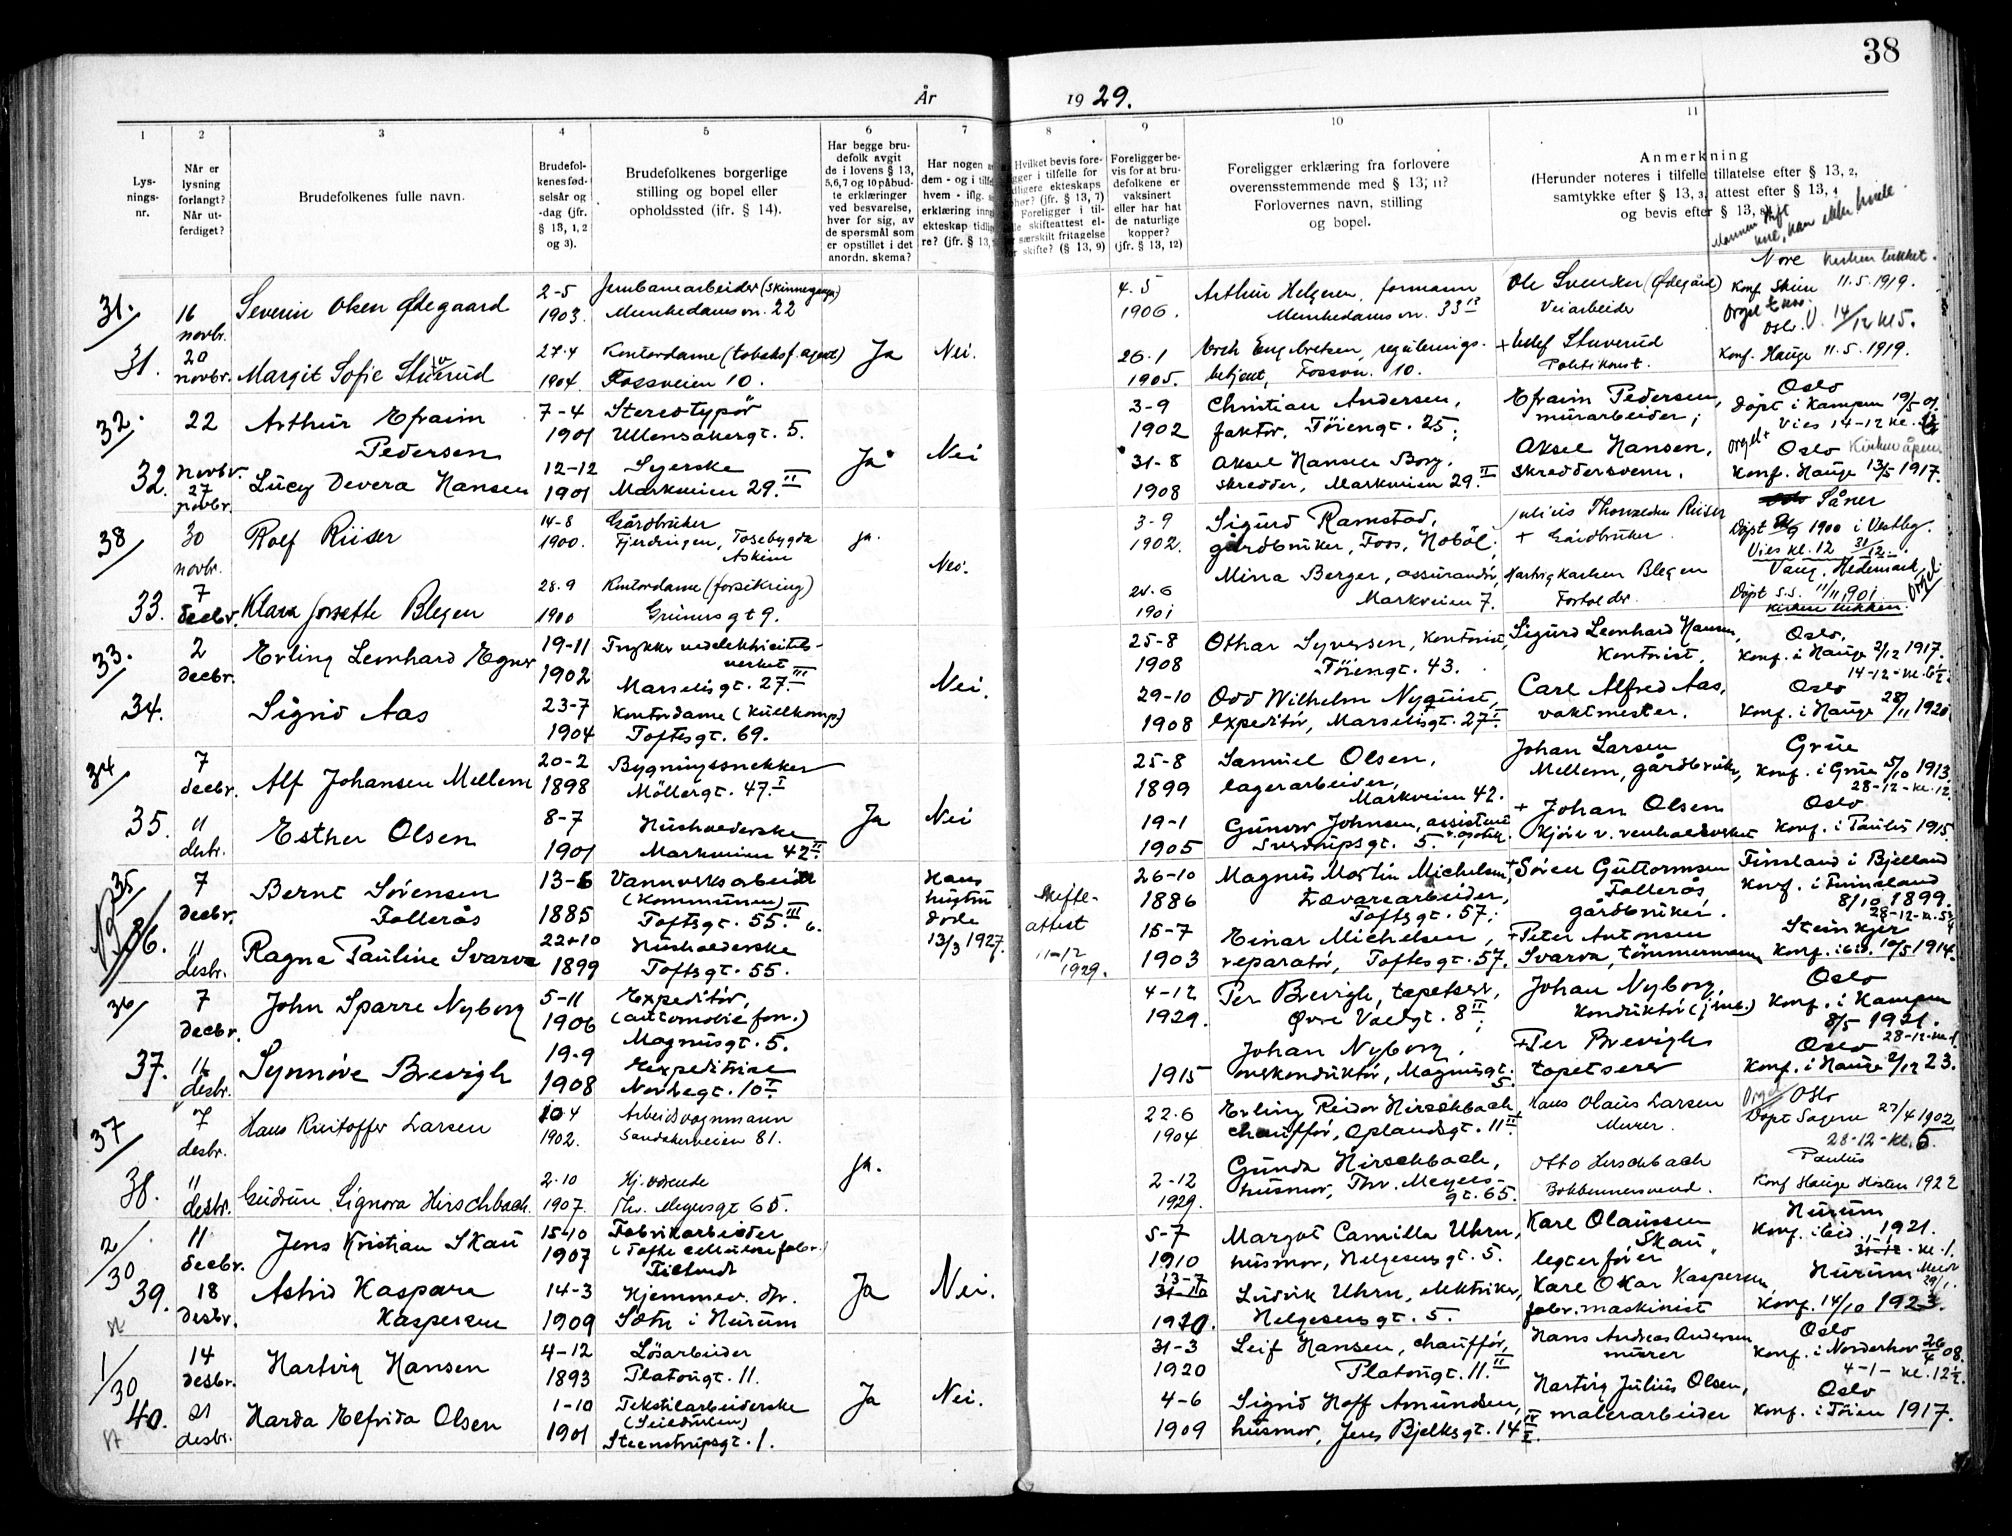 38
År 1929.
1 2 3 4 5 6 7 8 9 10 11
Lys-
nings-
nr.
Når er
lysning
forlangt?
Når ut-
ferdiget?
Brudefolkenes fulle navn.
Brudefol-
kenes fød-
selsår og
-dag (jfr.
§ 13, 1, 2
og 3).
Brudefolkenes borgerlige
stilling og bopel eller
opholdssted (ifr. § 14).
Har begge bru-
defolk avgit
de i lovens § 13,
5,6,7 og 10 påbud-
te erklæringer
ved besvarelse,
hver for sig, av
de spørsmål som
er opstillet i det
anordn. skema?
Har nogen
dem - og i tilfe
hvem - iflg.
erklæring inng
ekteskap tidlig
re? (jfr. § 13,
Hvilket bevis fore-
gger i tilfelle for
dligere ekteskaps
phør? (jfr. § 13, 7)
Foreligger i til-
le skifteattest el-
særskilt fritagelse
r skifte? (§ 13, 9)
Foreligger be-
vis for at bru-
defolkene er
vaksinert
eller har hat
de naturlige
kopper?
(jfr. § 13, 12)
Foreligger erklæring fra forlovere
overensstemmende med § 13, 11?
Forlovernes navn, stilling
og bopel.
Anmerkning
(Herunder noteres i tilfelle tillatelse efter § 13, 2,
samtykke efter § 13, 3, attest efter § 13, 4
og bevis efter § 13, 8).
31. 16 novbr. Severin Olsen Ødegaard 2-5 1903. Jernbanearbeider (skinnegangen) Munkedamsvn. 22
4.5 1906. Arthur Helgesen, formann Munkedamsvn. 33 Ole Svendsen (Ødegård) Veiarbeider Nore Kirken lukket. Konf. Skien 11.5.1919. Oslo. 14/12 kl 5.
31. 20 novbr. Margit Sofie Stuverud 27.4 1904. Kontordame (tobaksf. agent) Fossveien 10. Ja Nei.
26.1 1905. Engebretsen, regulerings-betjent, Fossvn. 10. + Stuverud Politikonst. Konf. Hauge 11.5.1919.
32. 22 novbr. Arthur Efraim Pedersen 7-4 1901 Stereotypør Ullensakergt. 5.
3-9 1902 Christian Andersen, faktor, Töiengt. 25; Efraim Pedersen, murarbeider; Oslo Döpt i Kampen 19/5 01. Vies 14-12 kl.
32. 27 novbr. Lucy Devera Hansen 12-12 1901 Syerske Markveien 29.II Ja Nei
31-8 1908 Aksel Hansen Borg, skredder, Markveien 29.II Aksel Hansen, skreddersvenn. Orgel + Oslo Kirken åpen Konf. Hauge 13/5 1917.
38 30 novbr. Rolf Riiser 14-8 1900. Gårdbruker Fjerdingen, Tosebygda Askim ja.
3-9 1902. Sigurd Ramstad, gårdbruker, Foss, Hobøl; Julius Thorvaldsen Riiser + Gårdbruker Såner Döpt 1900 i Vestby. Vies kl. 12 31/12.
33. 7 decbr. Klara Josette Blegen 28.9 1900 Kontordame (forsikring) Grünersgt 9. Nei.
24.6 1901 Mina Berger, assurandör, Markveien 7. Hartvig Karlsen Blegen Forholder Vang, Hedemark Döpt s.s. 11/11 1901. Orgel Kirken lukken.
33. 2 decbr. Erling Leonhard Egner 19-11 1902 Trykker ved elektricitets-verket Marselisgt. 27.III
25-8 1908 Othar Syversen, kontorist, Töiengt. 43. Sigurd Leonhard Hansen, Kontorist, Oslo, Konf. i Hauge 2/12 1917. 14-12-kl. 6½.
34. Sigrid Aas 23-7 1904 Kontordame (Kullkomp) Toftesgt. 69. Nei.
29-10 1908 Odd Wilhelm Nyquist, expeditör, Marselisgt. 27.I Carl Alfred Aas, vaktmester. Oslo Konf. i Hauge 28/11 1920.
34 7 decbr. Alf Johansen Mellem 20-2 1898 Bygningssnekker Möllergt. 47.I
25-8 1899 Samuel Olsen, lagerarbeider, Markveien 42. Johan Larsen Mellem, gårdbruker, Grue Konf. i Grue 5/10 1913. 28-12-kl. 12.
35. " desbr. Esther Olsen 8-7 1901 Husholderske Markveien 42.II Ja Nei
19-1 1905 Gunvor Johnsen, assistent v. apotek. Sverdrupsgt. 5. + Johan Olsen Kjörer v. renholdsverket Oslo Konf. i Paulus 1915
35 7 decbr. Bernt Sörensen Follerås 13-6 1885 Vannverksarbeider (Kommunen) Toftesgt. 55.III Hans hustru döde 13/3 1927. Skifte-attest 11-12 1929.
26-10 1886 Magnus Martin Michelsen, Lævarearbeider, Toftesgt. 57; Sören Guttormsen Follerås gårdbruker. Finsland i Bjelland Konf. i Finnsland 8/10 1899. 28-12-kl. 5¾
36. " desbr. Ragna Pauline Svarva 22-10 1899 Husholderske Toftesgt. 55.
15-7 1903 Einar Michelsen, reparatör, Toftesgt. 57. + Peter Antonsen Svarva, tömmermann Steinkjer Konf. ibid. 10/5 1914.
36 7 decbr. John Sparre Nyborg 5-11 1906 Expeditör, (automobilforr.) Magnusgt. 5.
4-12 1929. Per Brevigh, tapetserer, Övre Voldgt. 8 II; Johan Nyborg, Konduktör (jernb.) Oslo Konf. i Kampen 8/5 1921. 28-12-kl.
37. 14 desbr. Synnöve Brevigh 19-9 1908 Expeditrise Norbygt. 10 I
1915 Johan Nyborg, overkonduktör, Magnusgt. 5. + Per Brevigh tapetserer Oslo Konf. i Hauge 2/12 23.
37 7 desbr. Hans Kristoffer Larsen 10-4 1902. Arbeidsvognmann Sandakerveien 81.
22.6 1904 Erling Reidar Hirschbach chauffør, Oplandsgt. 11.II Hans Olaus Larsen Murer. Orgel Oslo Döpt Sagene 27/4 1902 28-12-kl. 6.
38. " desbr. Gudrun Signora Hirschbach 2.10 1907. Hj. værende Thv. Meyersgt 65. ja.
2-12 1929. Gunda Hirschbach, husmor, Thv. Meyers-gt. 65. Otto Hirschbach Bokbinnersvend. Paulus Konf Hauge Hösten 1922
2/30 11 decbr. Jens Kristian Skau 15-10 1907 Fabrikarbeider (Tofte cellulosefabr.) Filtvedt
5-7 1910 Margot Camilla Uhrn, husmor, Helgesensgt. 5. Karl Olaussen Skau, legterfører Hurum Konf. ibid., 1921. 31-12-kl. 1.
39. 18 desbr. Astrid Kaspara Kaspersen 14-3 1909 Hjemmev. dtr. Sætre i Hurum Ja Nei.
13-7 31-10 1920. Ludvik Uhrn, elektriker, Helgesensgt. 5. Karl Oskar Kaspersen fabr. maskinist Hurum Konf. 14/10 1923.
1/30 14 desbr. Hartvig Hansen 4-12 1893 Lösarbeider Platougt. 11.
31-3 1920 Leif Hansen, chauffør, Platougt. 11.II Hans Andreas Andersen murer Oslo Konf. i Norderhov 26/4 08. 4-1-kl. 12½.
40. 21 desbr. Harda Elfrida Olsen 1-10 1901 Tekstilarbeiderske (Seilduken) Steenstrupsgt. 1. Ja Nei.
4-6 1909 Sigrid Hoff Amundsen, husmor, Jens Bjelkesgt. 14 Hartvig Julius Olsen, malerarbeider Oslo Konf. i Töien 1917.